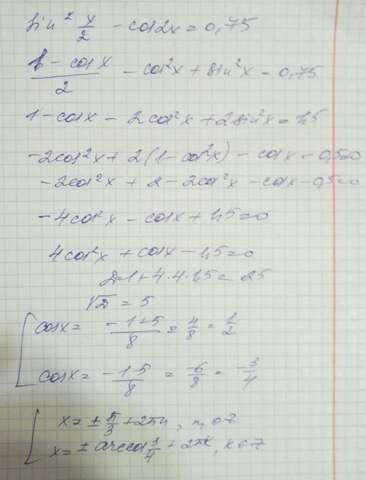 sin² x/2 - cos2x = 0,75
(1 - cosx)/2 - cos²x + sin²x = 0,75
1 - cosx - 2cos²x + 2sin²x = 1,5
-2cos²x + 2(1 - cos²x) - cosx - 0,5=0
-2cos²x + 2 - 2cos²x - cosx - 0,5=0
-4cos²x - cosx + 1,5=0
4cos²x + cosx - 1,5=0
D=1+4·4·1,5= 25
√D = 5
cosx= (-1+5)/8 = 4/8 = 1/2
cosx= (-1-5)/8 = -6/8 = -3/4
x= ± π/3 +2πn, n∈Z
x= ± arccos 3/4 + 2πk, k∈Z